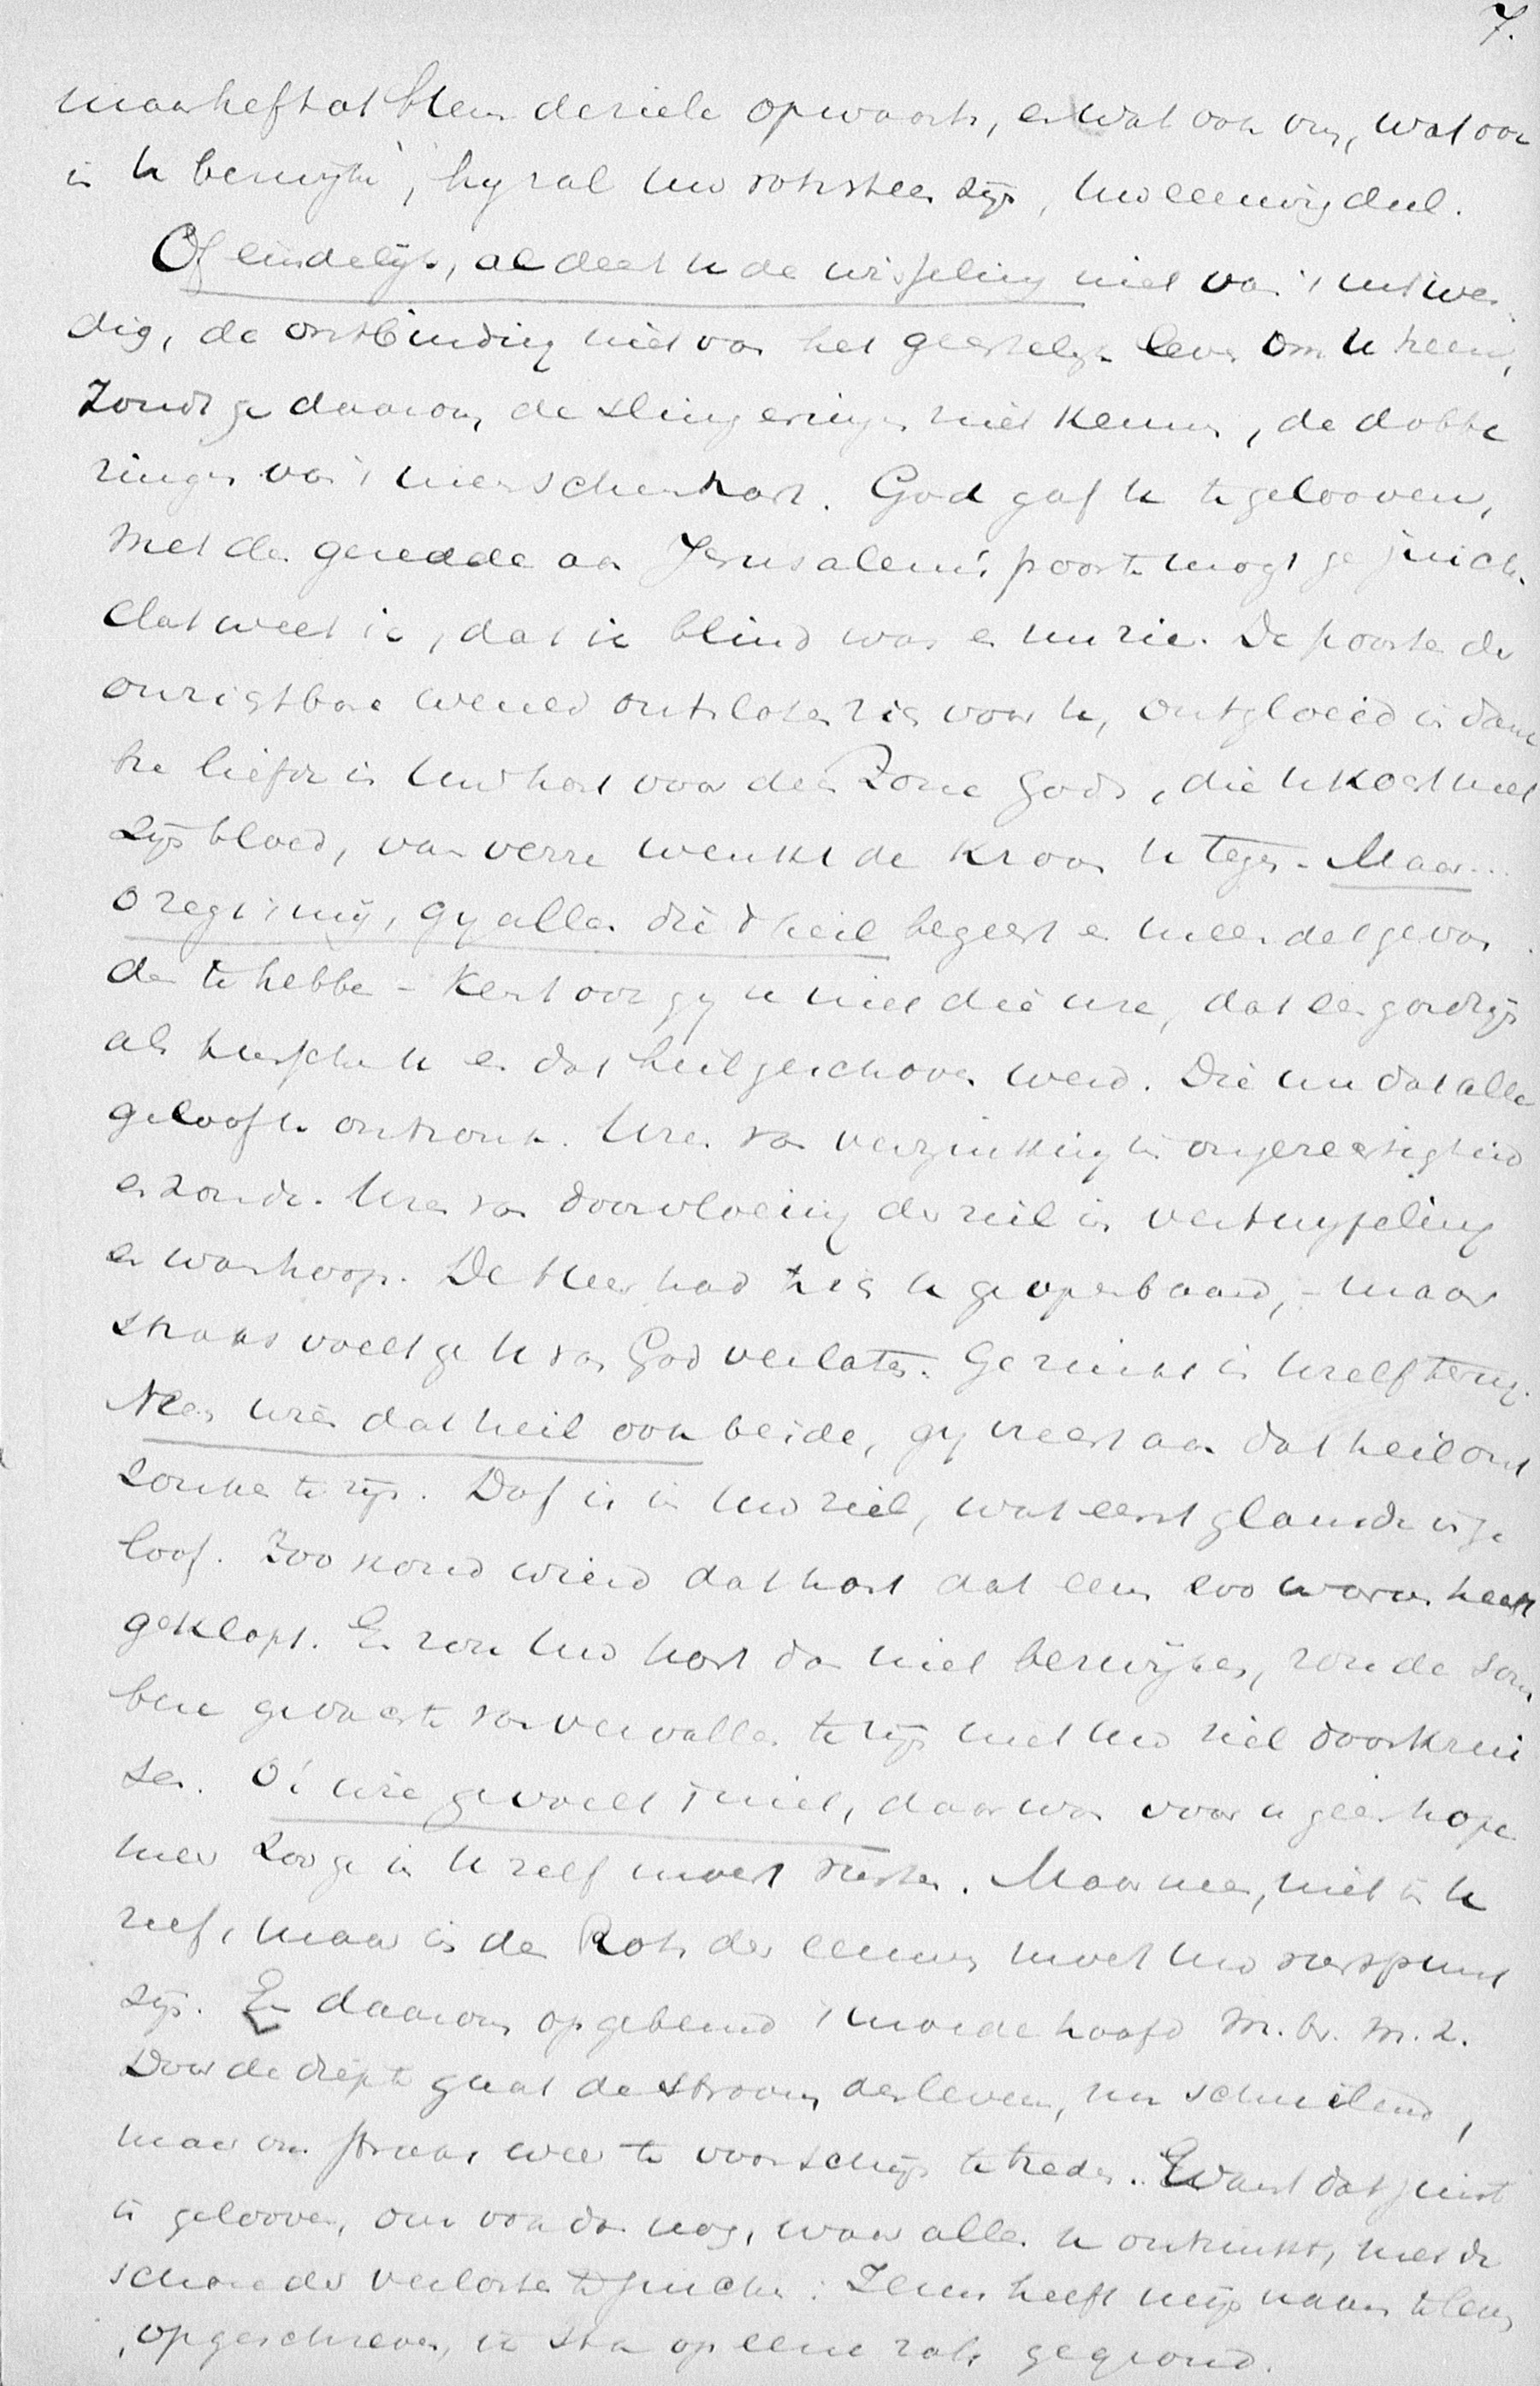 7.
maar heft at Hem de ziele opwaarts, en wat ook om, wat ook
in U bezwijke, hij zal uw rotssteen zijn, uw eeuwig deel.
Of eindelijk, al deert u de wisseling niet van 't uitwen-
dig, de ontbinding niet van het geestelijk leven om U heen,
zoudt ge daarom de slingeringen niet kennen, de dobbe
ringen van 't menschenhart. God gaf U te gelooven,
met den genezene aan Jerusalems poorte mogt ge juichen
dat weet ik, dat ik blind was en nu zie. De poorte der
onzigtbare wereld ontsloten zich voor U, ontgloeid is dank
bre liefde in Uw hart voor den Zone Gods, die U kocht met
zijn bloed, van verre wenkt de kroon U tegen. Maar...
o zegt 't mij, gij allen die 't heil begeert en meendet gevon
den te hebben - kent ook gij u niet die ure, dat een gordijn
als tusschen U en dat heil geschoven werd. Die u dat alle
geloofte ontzonk. Uren van verzinking in ongeregtigheid
en zonde. Uren van doorvloeiing der ziel in vertwijfeling
en wanhoop. De Heer had zich U geopenbaard, - maar
straks voelt ge U van God verlaten. Ge zinkt in Uzelf terug.
Neen uwe dat heil ook beide, gij vreest aan dat heil ont
zonken te zijn. Dof is in Uw ziel, wat eerst glansde in ge
loof. Zoo koud wierd dat hart dat eens zoo warm heeft
geklopt. En zou Uw hart dan niet bezwijken, zou de som
bere gedachte van vervallen te zijn niet Uw ziel doorkrui
sen. O! wie gevoelt 't niet, daar was voor u geen hope
meer zoo ge in U zelf moest rusten. Maar neen, niet in U
zelf, maar in den Rots der eeuwen moet Uw rustpunt
zijn. En daarom opgebeurd 't moede hoofd M. br. M. z.
Door de diepte gaat de stroom des levens, nu schuilend,
maar om straks weer te voorschijn te treden. Want dat juist
is gelooven, om ook dan nog, waar alles U ontzinkt, met de
schare der verlosten te juichen: Jezus heeft mijn naam ten leven
opgeschreven, ik sta op eene rots gegrond.